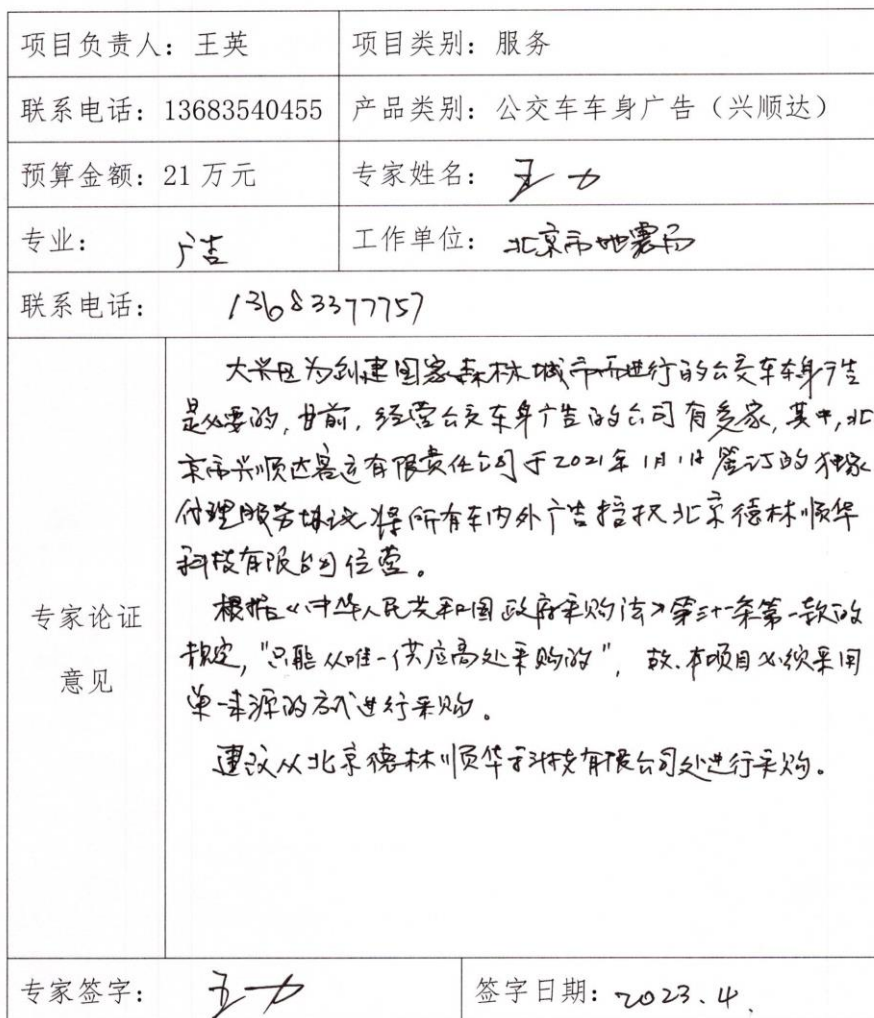 项目负责人：王英
项目类别：服务
联系电话：13683540455
产品类别：公交车车身广告（兴顺达）
预算金额：21 万元
专家姓名：王力
专业：广告
工作单位：北京市地震局
联系电话：13683377757
专家论证
意见
大兴区为创建国家森林城市而进行的公交车车身广告
是必要的，目前，经营公交车身广告的公司有多家，其中，北
京市兴顺达客运有限责任公司于2021年1月1日签订的独家
代理服务协议将所有车内外广告授权北京德林顺华
科技有限公司经营。
根据《中华人民共和国政府采购法》第三十一条第一款的
规定，“只能从唯一供应商处采购的”，故，本项目必须采用
单一来源的方式进行采购。
建议从北京德林顺华科技有限公司处进行采购。
专家签字：王力
签字日期：2023.4.